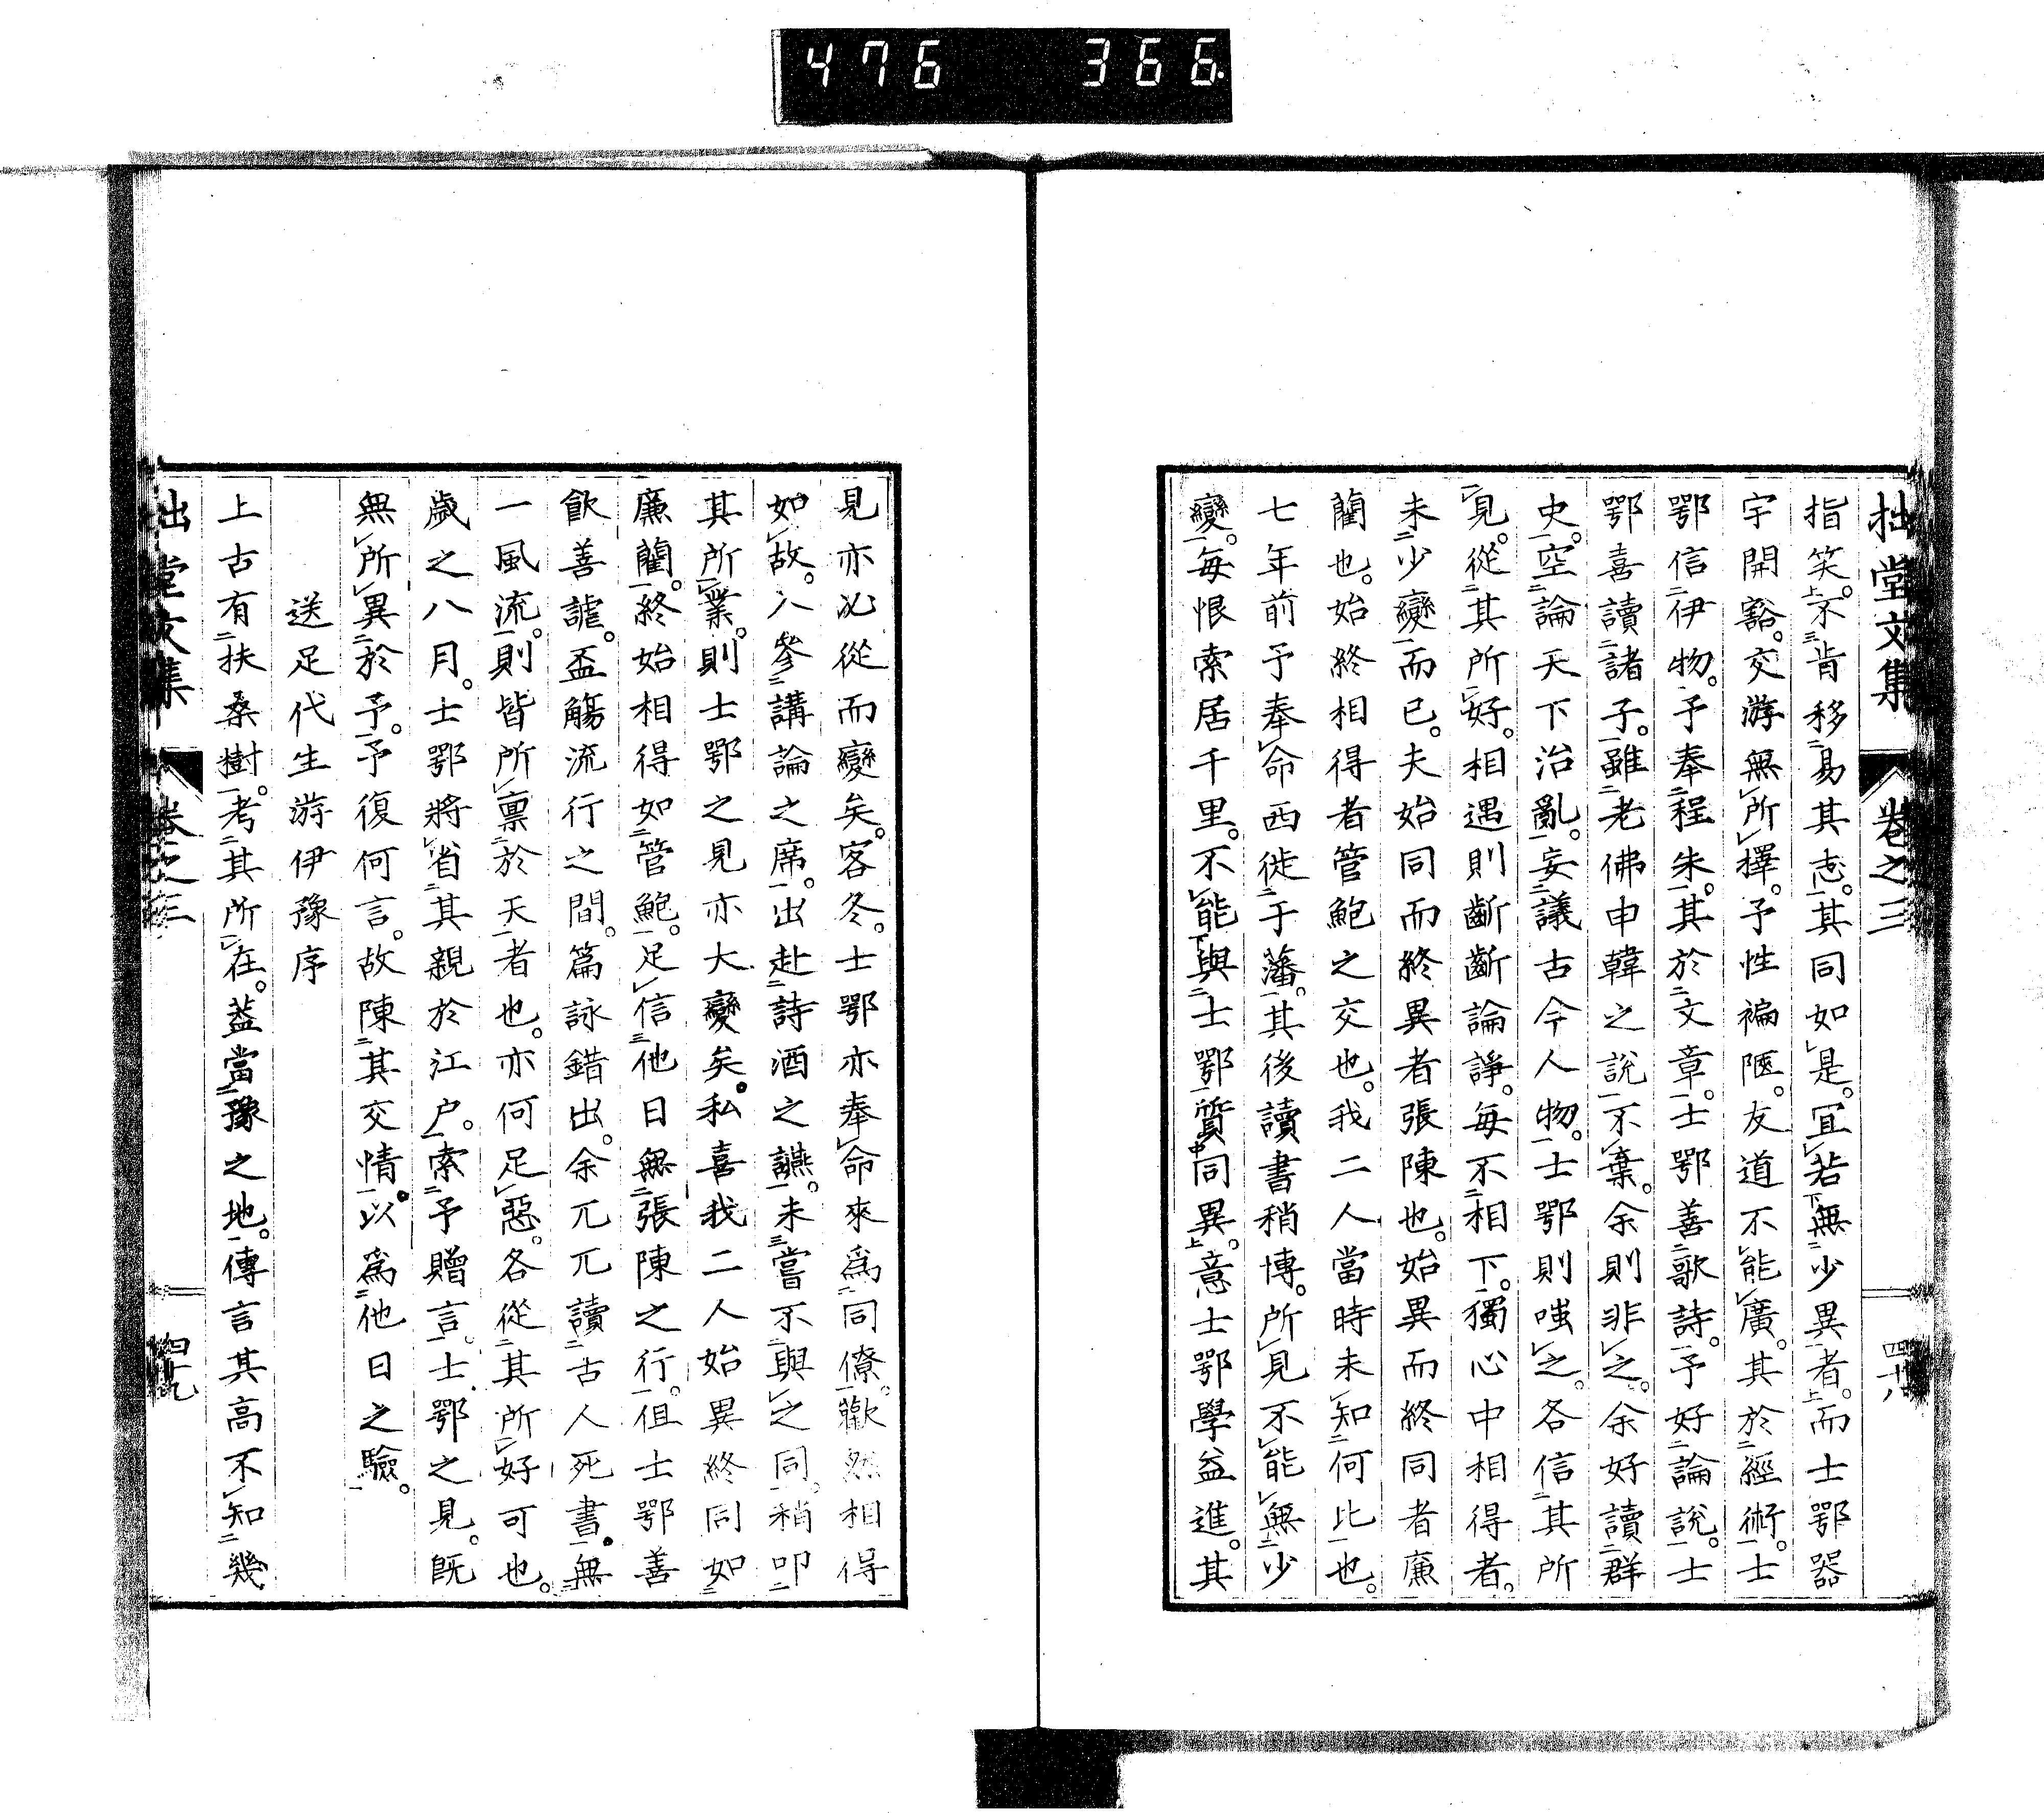 476 366
拙堂文集 卷之三 四十八
指笑。不肯移易其志。其同如是。冝若無少異者。而士鄂器
宇開豁。交游無所擇。予性褊陋。友道不能廣。其於經術。士
鄂信伊物。予奉程朱。其於文章。士鄂善歌詩。予好論說。士
鄂喜讀諸子。雖老佛申韓之說不棄。余則非之。余好讀群
史。空論天下治亂。妄議古今人物。士鄂則嗤之。各信其所
見。從其所好。相遇則齗齗論諍。每不相下。獨心中相得者。
未少變而已。夫始同而終異者張陳也。始異而終同者廉
藺也。始終相得者管鮑之交也。我二人當時未知何比也。
七年前予奉命西徙于藩。其後讀書稍博。所見不能無少
變。每恨索居千里。不能與士鄂質同異。意士鄂學益進。其
見亦必從而變矣。客冬。士鄂亦奉命來爲同僚。歡然相得
如故。入參講論之席。出赴詩酒之讌。未嘗不與之同。稍叩
其所業。則士鄂之見亦大變矣。私喜我二人始異終同如
廉藺。終始相得如管鮑。足信他日無張陳之行。但士鄂善
飲善謔。盃觴流行之間。篇詠錯出。余兀兀讀古人死書。無
一風流。則皆所稟於天者也。亦何足惡。各從其所好可也。
歲之八月。士鄂將省其親於江户。索予贈言。士鄂之見。旣
無所異於予。予復何言。故陳其交情。以爲他日之驗。
送足代生游伊豫序
上古有扶桑樹。考其所在。葢當豫之地。傳言其高不知幾
拙堂文集 卷之三 四十九